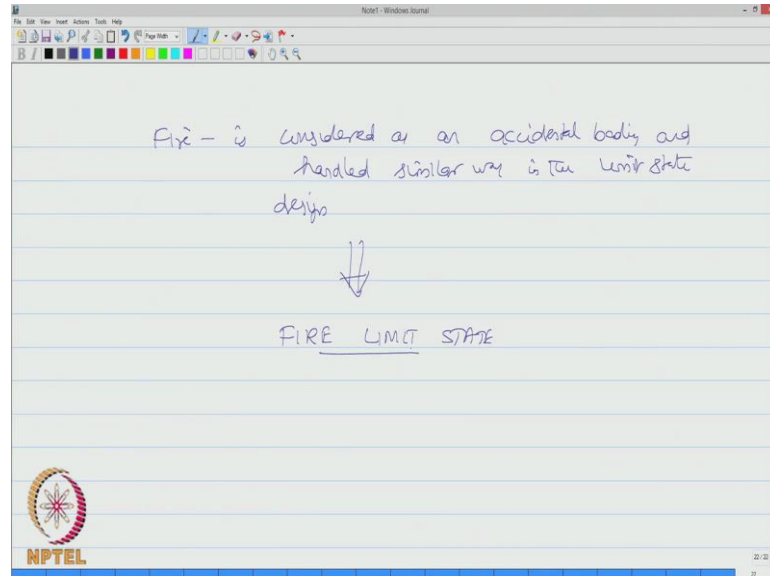 Note1 - Windows Journal
File Edit View Insert Actions Tools Help
Page Width
B I
Fire - is considered as an accidental loading and
handled similar way in the limit state
design
FIRE LIMIT STATE
NPTEL
22/22
22